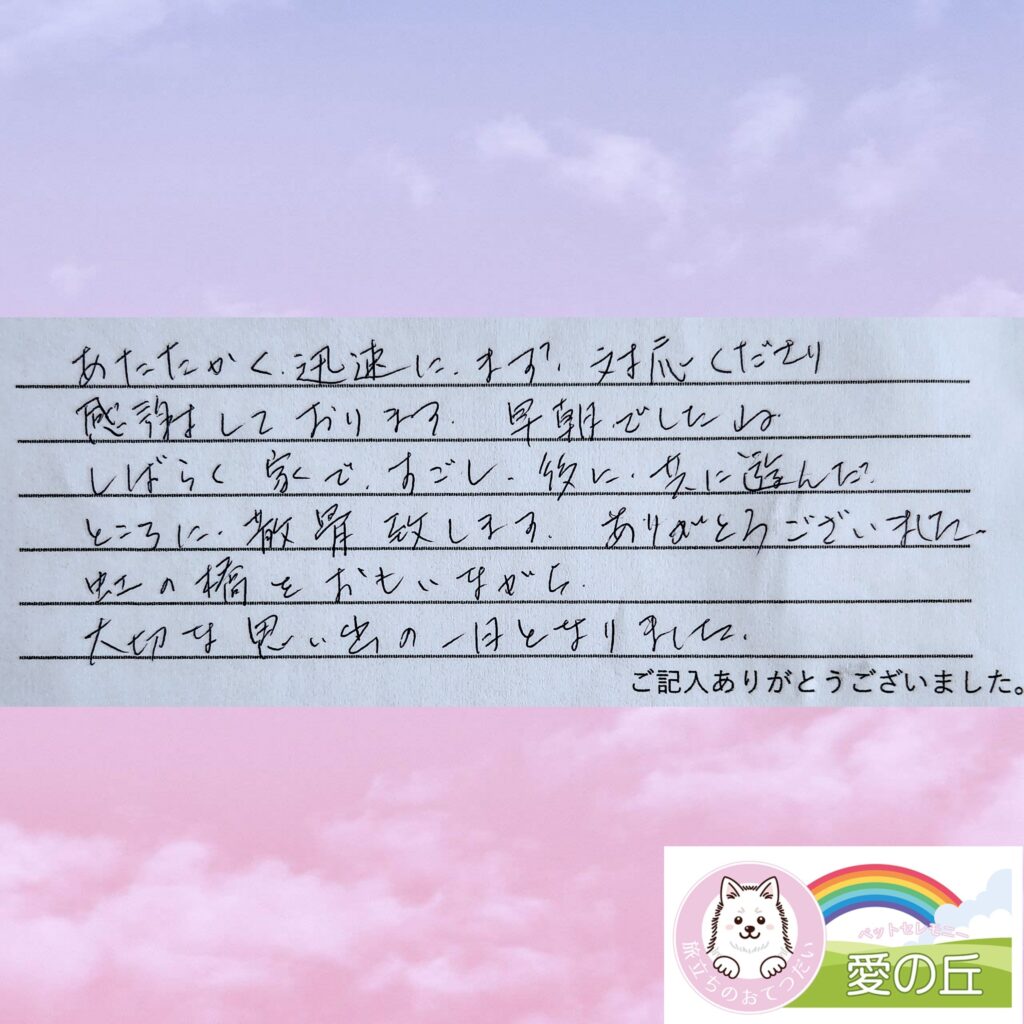 あたたかく、迅速に、まず、対応くださり
感謝しております。早朝でしたね
しばらく家で、すごし、後に、共に遊んだ
ところに、散骨致します。ありがとうございました。
虹の橋をおもいながら、
大切な思い出の一日となりました。
ご記入ありがとうございました。
旅立ちのおてつだい
ペットセレモニー
愛の丘